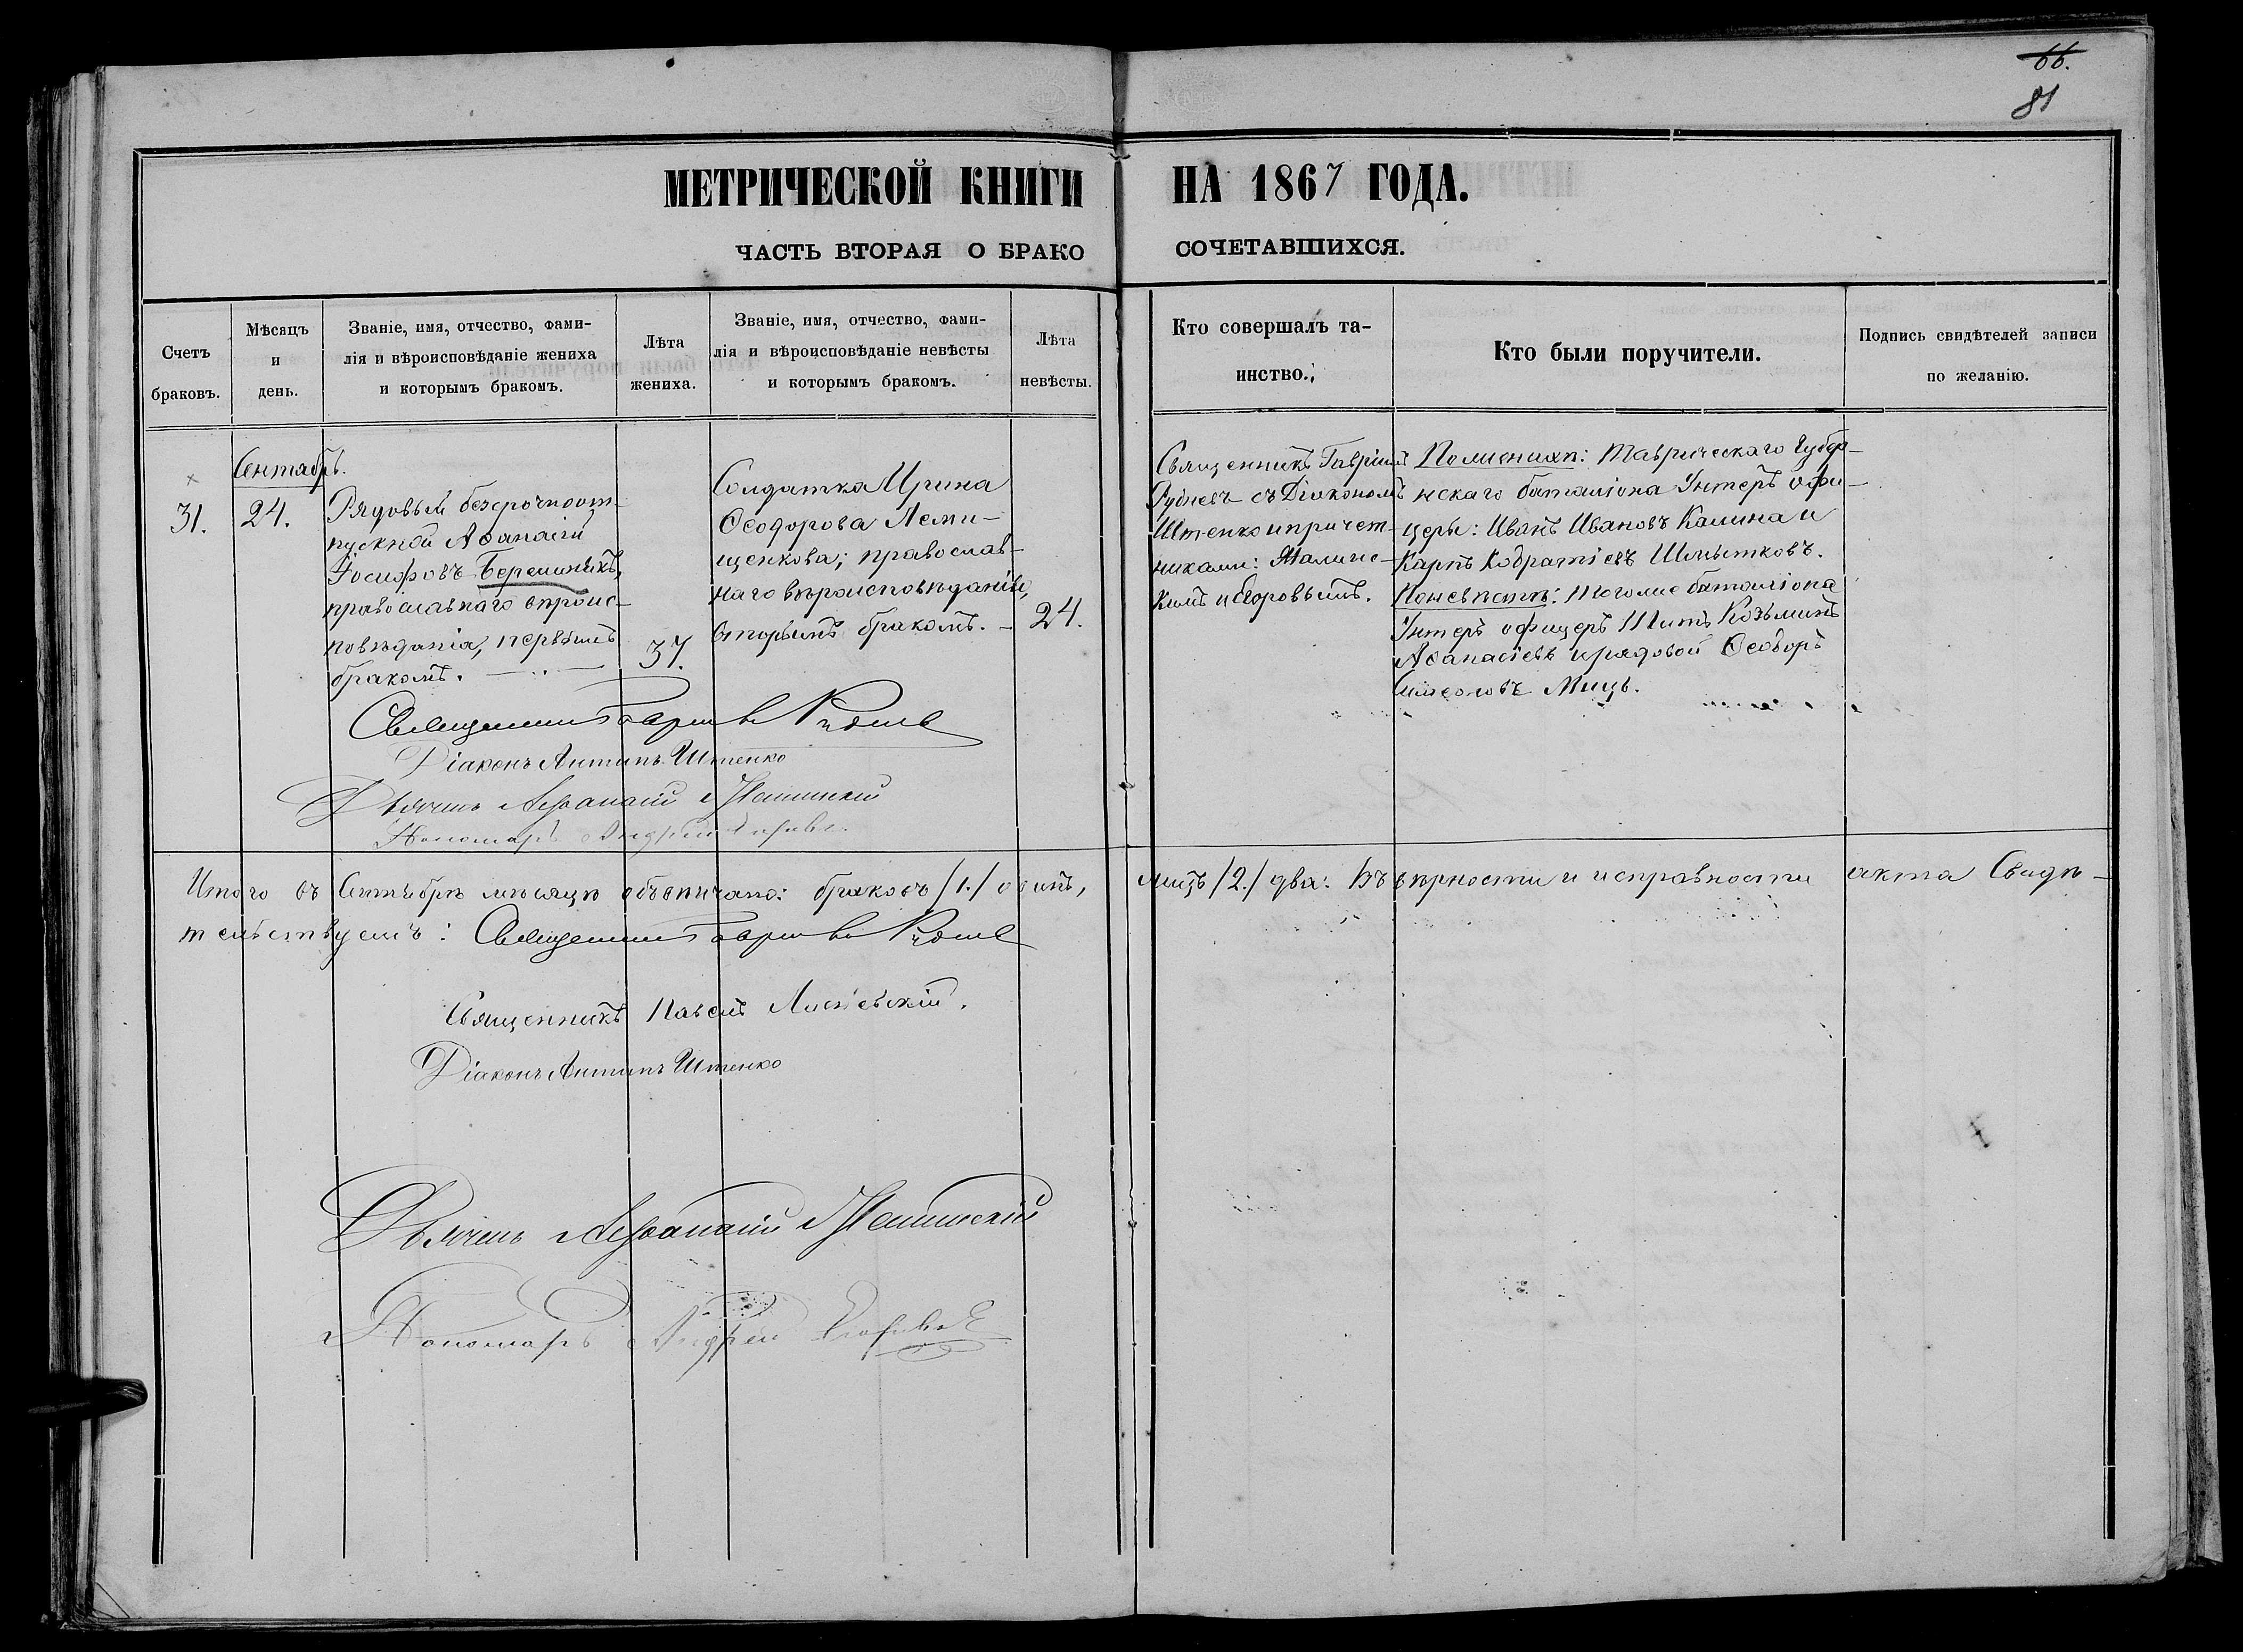 66.
81
МЕТРИЧЕСКОЙ КНИГИ НА 1867 ГОДА.
ЧАСТЬ ВТОРАЯ О БРАКОСОЧЕТАВШИХСЯ.
Счетъ
браковъ.
Мѣсяцъ
и
день.
Званіе, имя, отчество, фами-
лія и вѣроисповѣданіе жениха
и которымъ бракомъ.
Лѣта
жениха.
Званіе, имя, отчество, фами-
лія и вѣроисповѣданіе невѣсты
и которымъ бракомъ.
Лѣта
невѣсты.
Кто совершалъ та-
инство.
Кто были поручители.
Подпись свидѣтелей записи
по желанію.
Сентябрь.
31.
24.
Рядовый безсрочноот-
пускной Аѳанасій
Іосифовъ
православнаго вѣроис-
повѣданія, первымъ
бракомъ.
37.
Солдатка Ирина
Ѳеодорова Леми-
щенкова; православ-
наго вѣроисповѣданія,
вторымъ бракомъ.
24.
Священникъ Гавріилъ
Рудневъ съ Діакономъ
Штенко и причет-
никами:
и Егоровымъ.
По женихѣ: Таврическаго Губер-
нскаго баталіона Унтеръ офи-
церы: Иванъ Ивановъ Калина и
Карпъ Шмытковъ.
По невѣстѣ: тогоже баталіона
Унтеръ офицеръ Титъ Козьминъ
Аѳанасіевъ и рядовой Ѳеодоръ
Симеоновъ Миць.
Священникъ Гавріилъ Рудневъ
Діаконъ Антипъ Штенко
Дьячекъ Аѳанасій
Пономарь Андрей Егоровъ
Итого въ Сентябрѣ мѣсяцѣ обвѣнчано: браковъ /1./ одинъ, лицъ /2./ два: Въ вѣрности и исправности акта Свидѣ-
тельствуемъ: Священникъ Гавріилъ Рудневъ
Священникъ Павелъ
Діаконъ Антипъ Штенко
Дьячекъ Аѳанасій
Пономарь Андрей Егоровъ